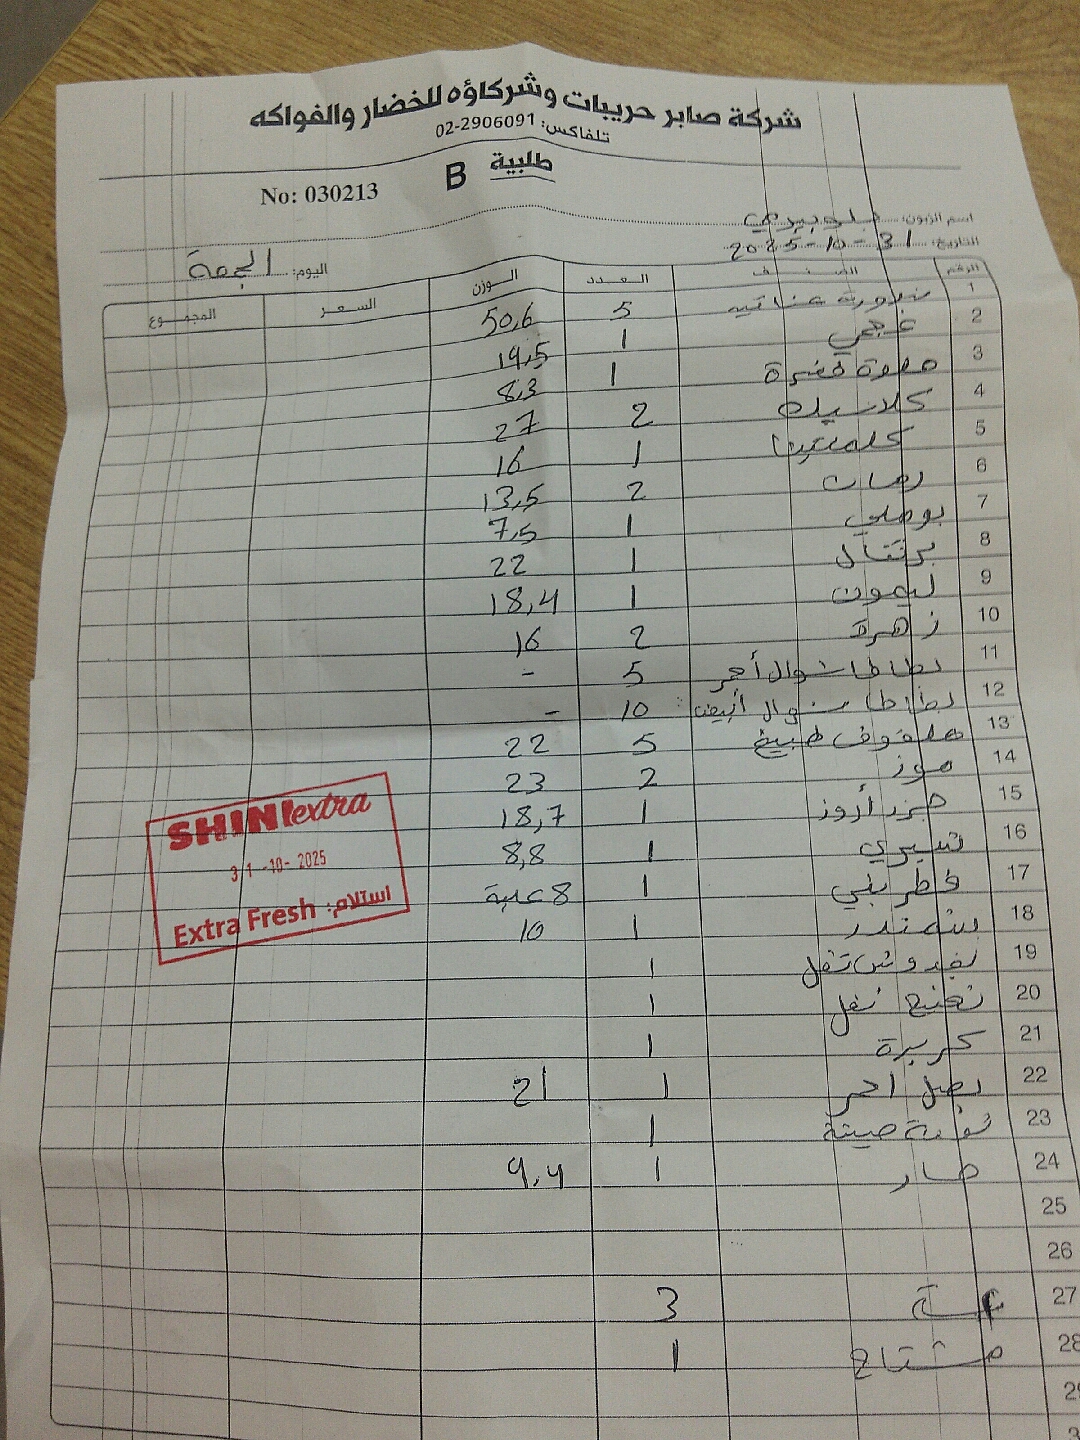 شركة صابر حريبات وشركاؤه للخضار والفواكه
تلفاكس: 02-2906091
طلبية B
No: 030213
اسم الزبون:
التاريخ: 31-10-2025
اليوم: الجمعة
الرقم الصنف العدد الوزن السعر المجموع
1 بندورة عناقيد 5 50,6
2 عجمي 1 19,5
3 حلوة خضرة 1 8,3
4 كلاسيك 2 27
5 كلمنتينا 1 16
6 رمان 2 13,5
7 بوملي 1 7,5
8 برتقال 1 22
9 ليمون 1 18,4
10 زهرة 2 16
11 بطاطا شوال أحمر 5 -
12 بطاطا شوال أبيض 10 -
13 ملفوف طبيخ 5 22
14 موز 2 23
15 جزر أروز 1 18,7
16 شيري 1 8,8
17 فطر بني 1 8 علبة
18 شمندر 1 10
19 بقدونس تقل 1
20 نعنع تقل 1
21 كزبرة 1
22 بصل احمر 1 21
23 1
24 خيار 1 9,4
25
26
27 3
28 مشتاح 1
29
SHINI extra
31-10-2025
استلام: Extra Fresh